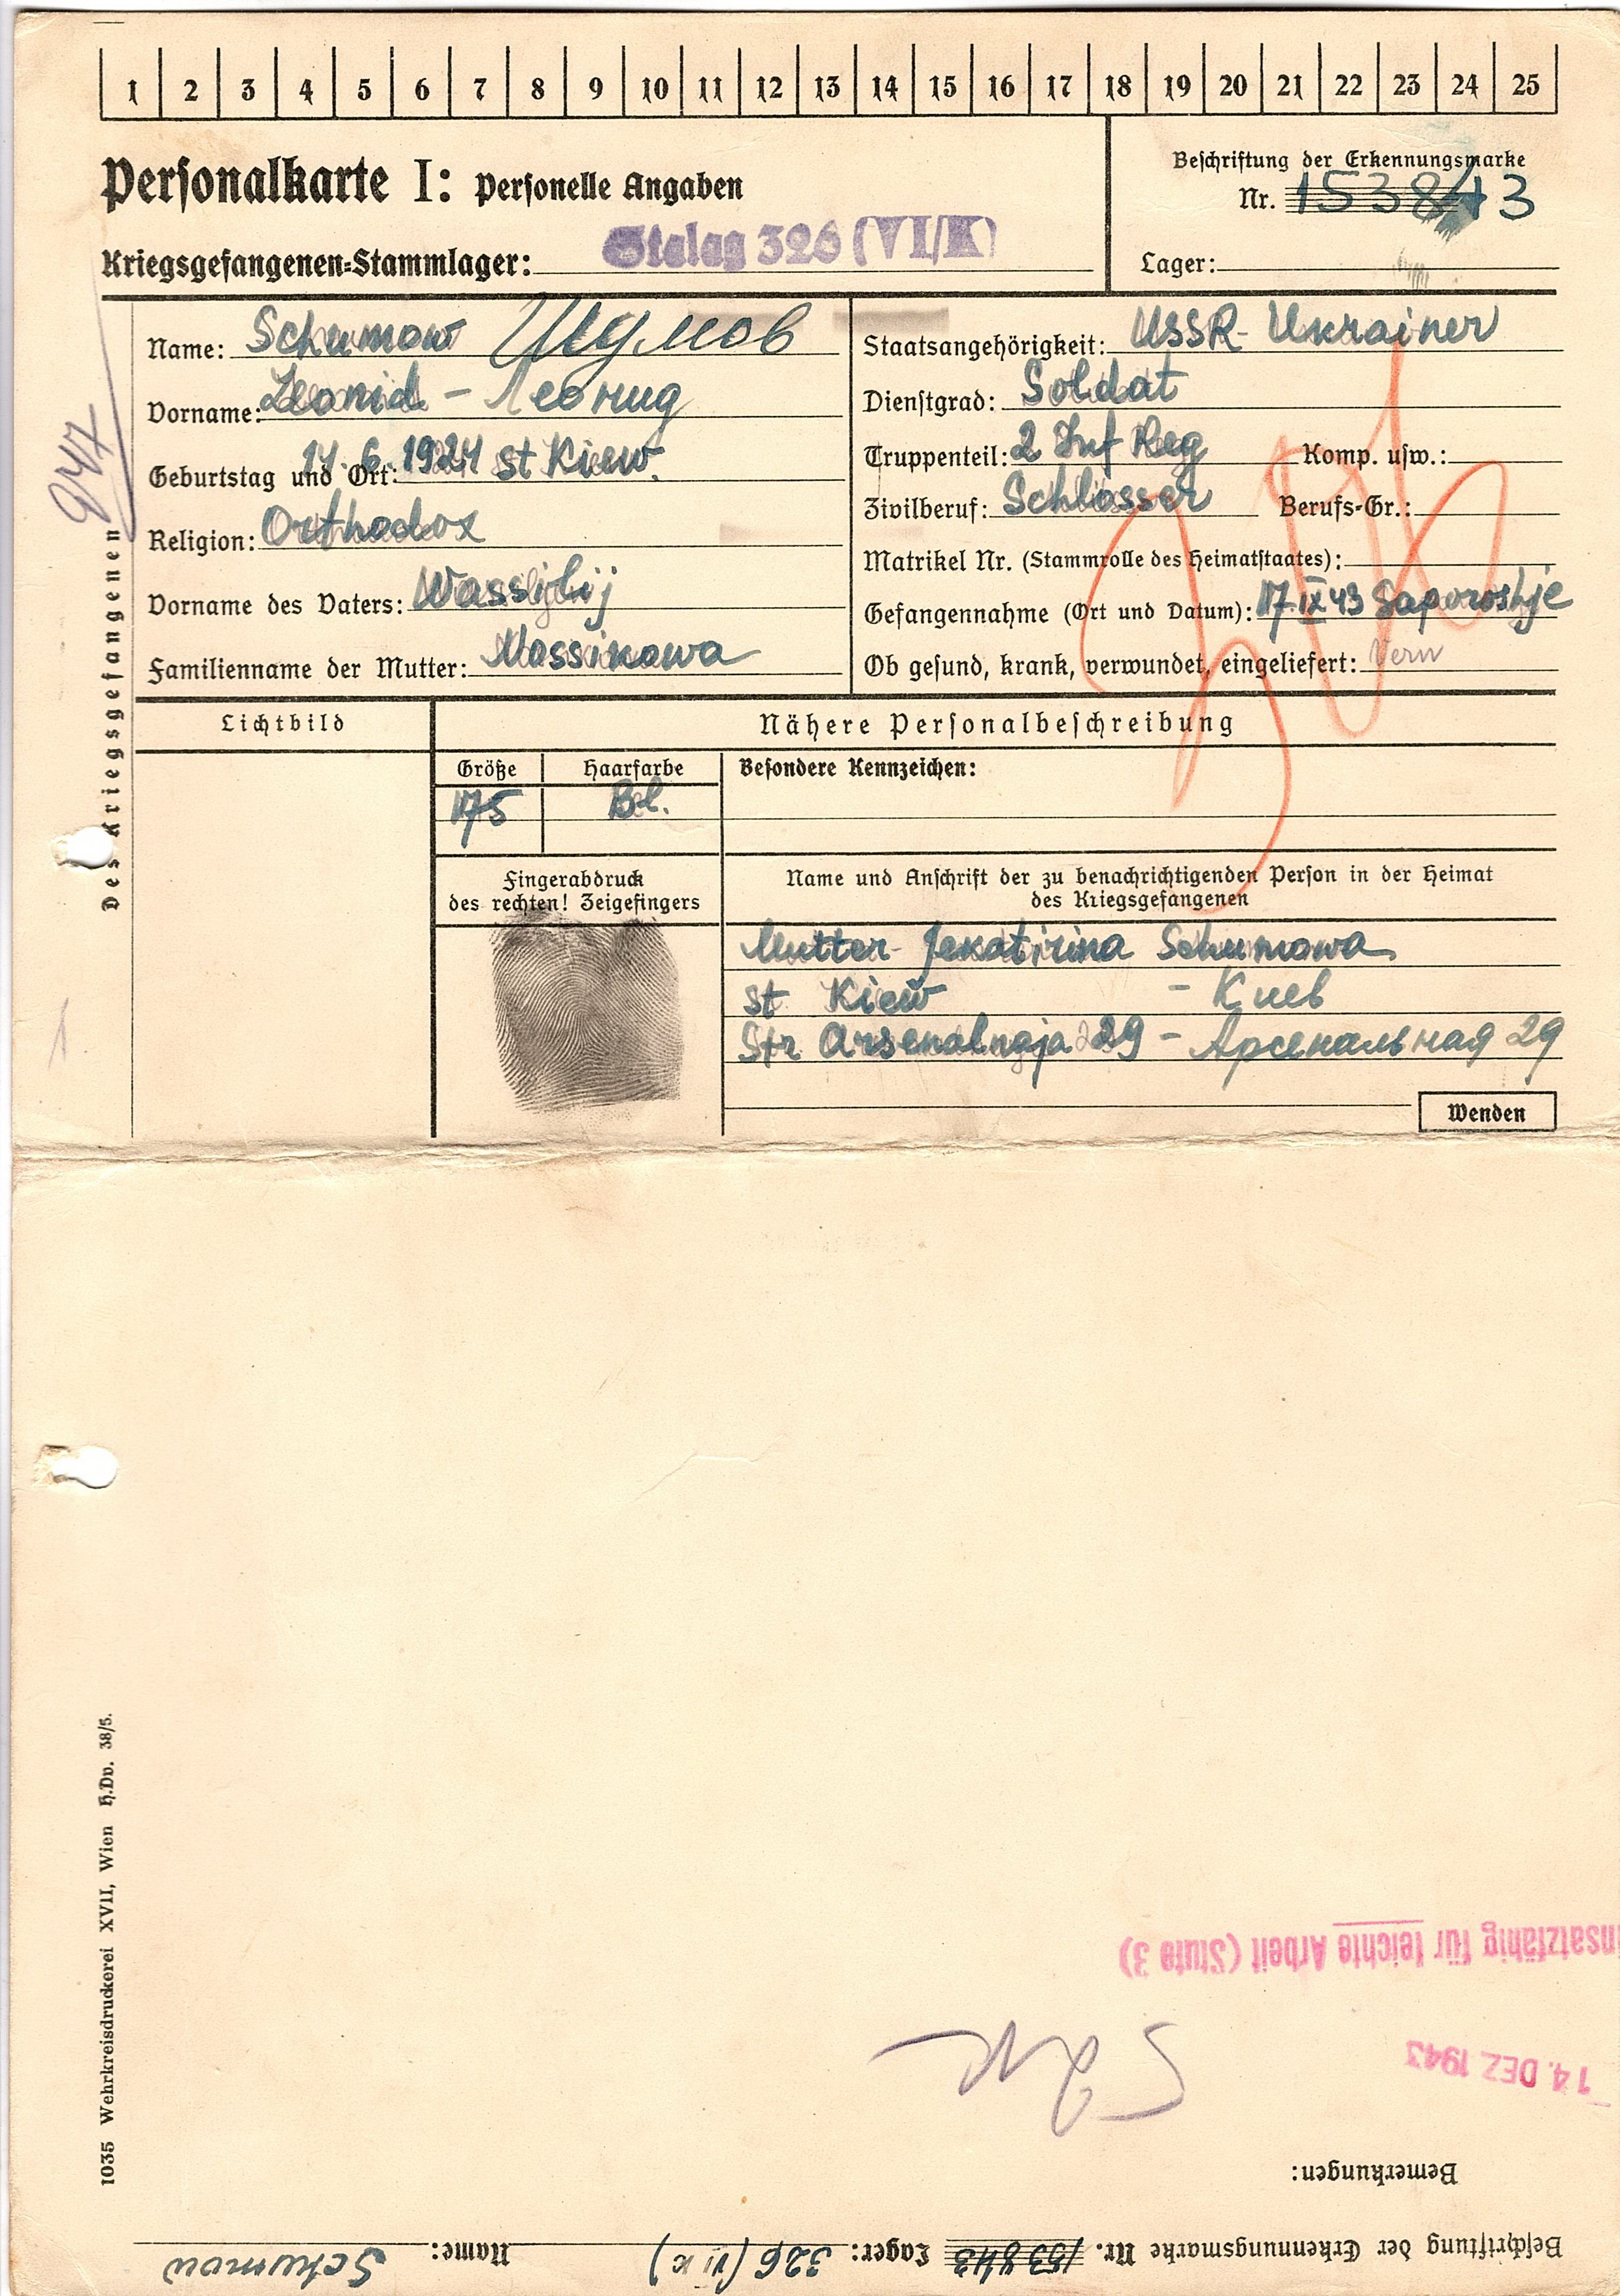 1 2 3 4 5 6 7 8 9 10 11 12 13 14 15 16 17 18 19 20 21 22 23 24 25
Personalkarte I: Personelle Angaben
Beschriftung der Erkennungsmarke
Nr. 153843
Kriegsgefangenen-Stammlager: Stalag 326 (VI/K)
Lager:
Des Kriegsgefangenen
Name: Schumow Шумов
Vorname: Leonid - Леонид
Geburtstag und Ort: 14.6.1924 st Kiew.
Religion: Orthodox
Vorname des Vaters: Wassilij
Familienname der Mutter: Massikowa
Staatsangehörigkeit: USSR- Ukrainer
Dienstgrad: Soldat
Truppenteil: 2 Inf Reg Komp. usw.:
Zivilberuf: Schlosser Berufs-Gr.:
Matrikel Nr. (Stammrolle des Heimatstaates):
Gefangennahme (Ort und Datum): 17.IX 43 Saporoshje
Ob gesund, krank, verwundet, eingeliefert: Verw
Lichtbild
Nähere Personalbeschreibung
Größe Haarfarbe
175 Bl.
Besondere Kennzeichen:
Fingerabdruck
des rechten! Zeigefingers
Name und Anschrift der zu benachrichtigenden Person in der Heimat
des Kriegsgefangenen
Mutter- Jekatirina Schumowa
st Kiew - Киев
Str Arsenalnaja 29 - Арсенальная 29
Wenden
1035 Wehrkreisdruckerei XVII, Wien H.Dv. 38/5.
insatzfähig für leichte Arbeit (Stufe 3)
14. DEZ 1943
Bemerkungen:
Beschriftung der Erkennungsmarke Nr. 153843 Lager: 326 (VI K) Name: Schumow